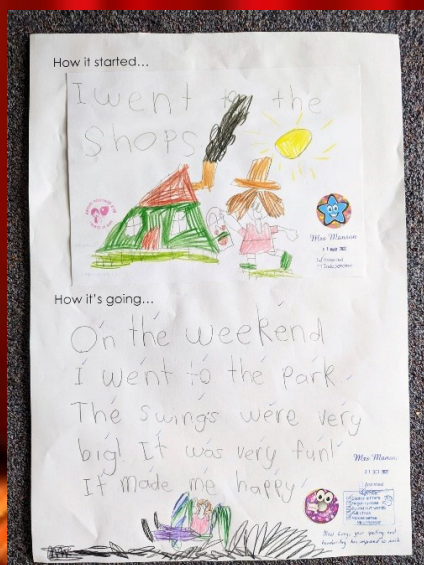 How it started...
I went to the
Shops
Mrs Manson
How it's going...
On the weekend
I went to the park
The swings were very
big! It was very fun!
It made me happy
Mrs Manson